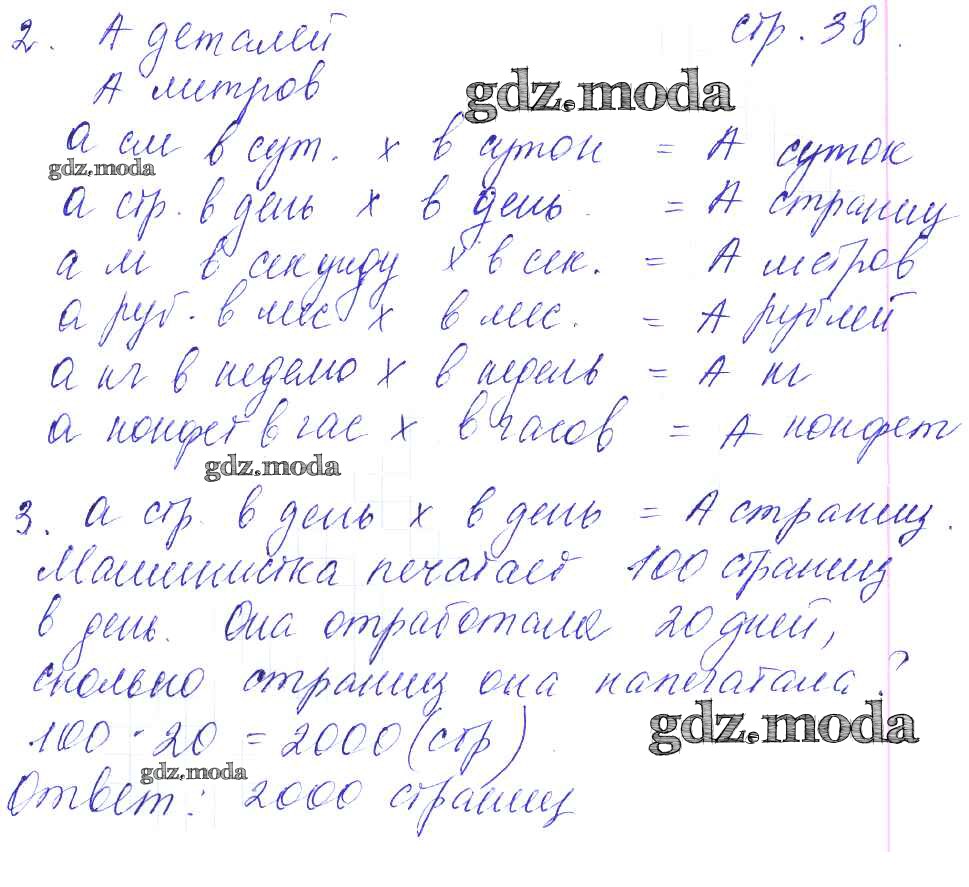 2. А деталей стр. 38.
А литров
gdz.moda
а см в сут. х в суток = А суток
gdz.moda
а стр. в день х в день. = А страниц
а м в секунду х в сек. = А метров
а руб. в мес х в мес. = А рублей
а кг в неделю х в недель = А кг
а конфет в час х в часов = А конфет
gdz.moda
3. а стр. в день х в день = А страниц.
Машинистка печатает 100 страниц
в день. Она отработала 20 дней,
сколько страниц она напечатала?
gdz.moda
100 · 20 = 2000 (стр)
gdz.moda
Ответ: 2000 страниц